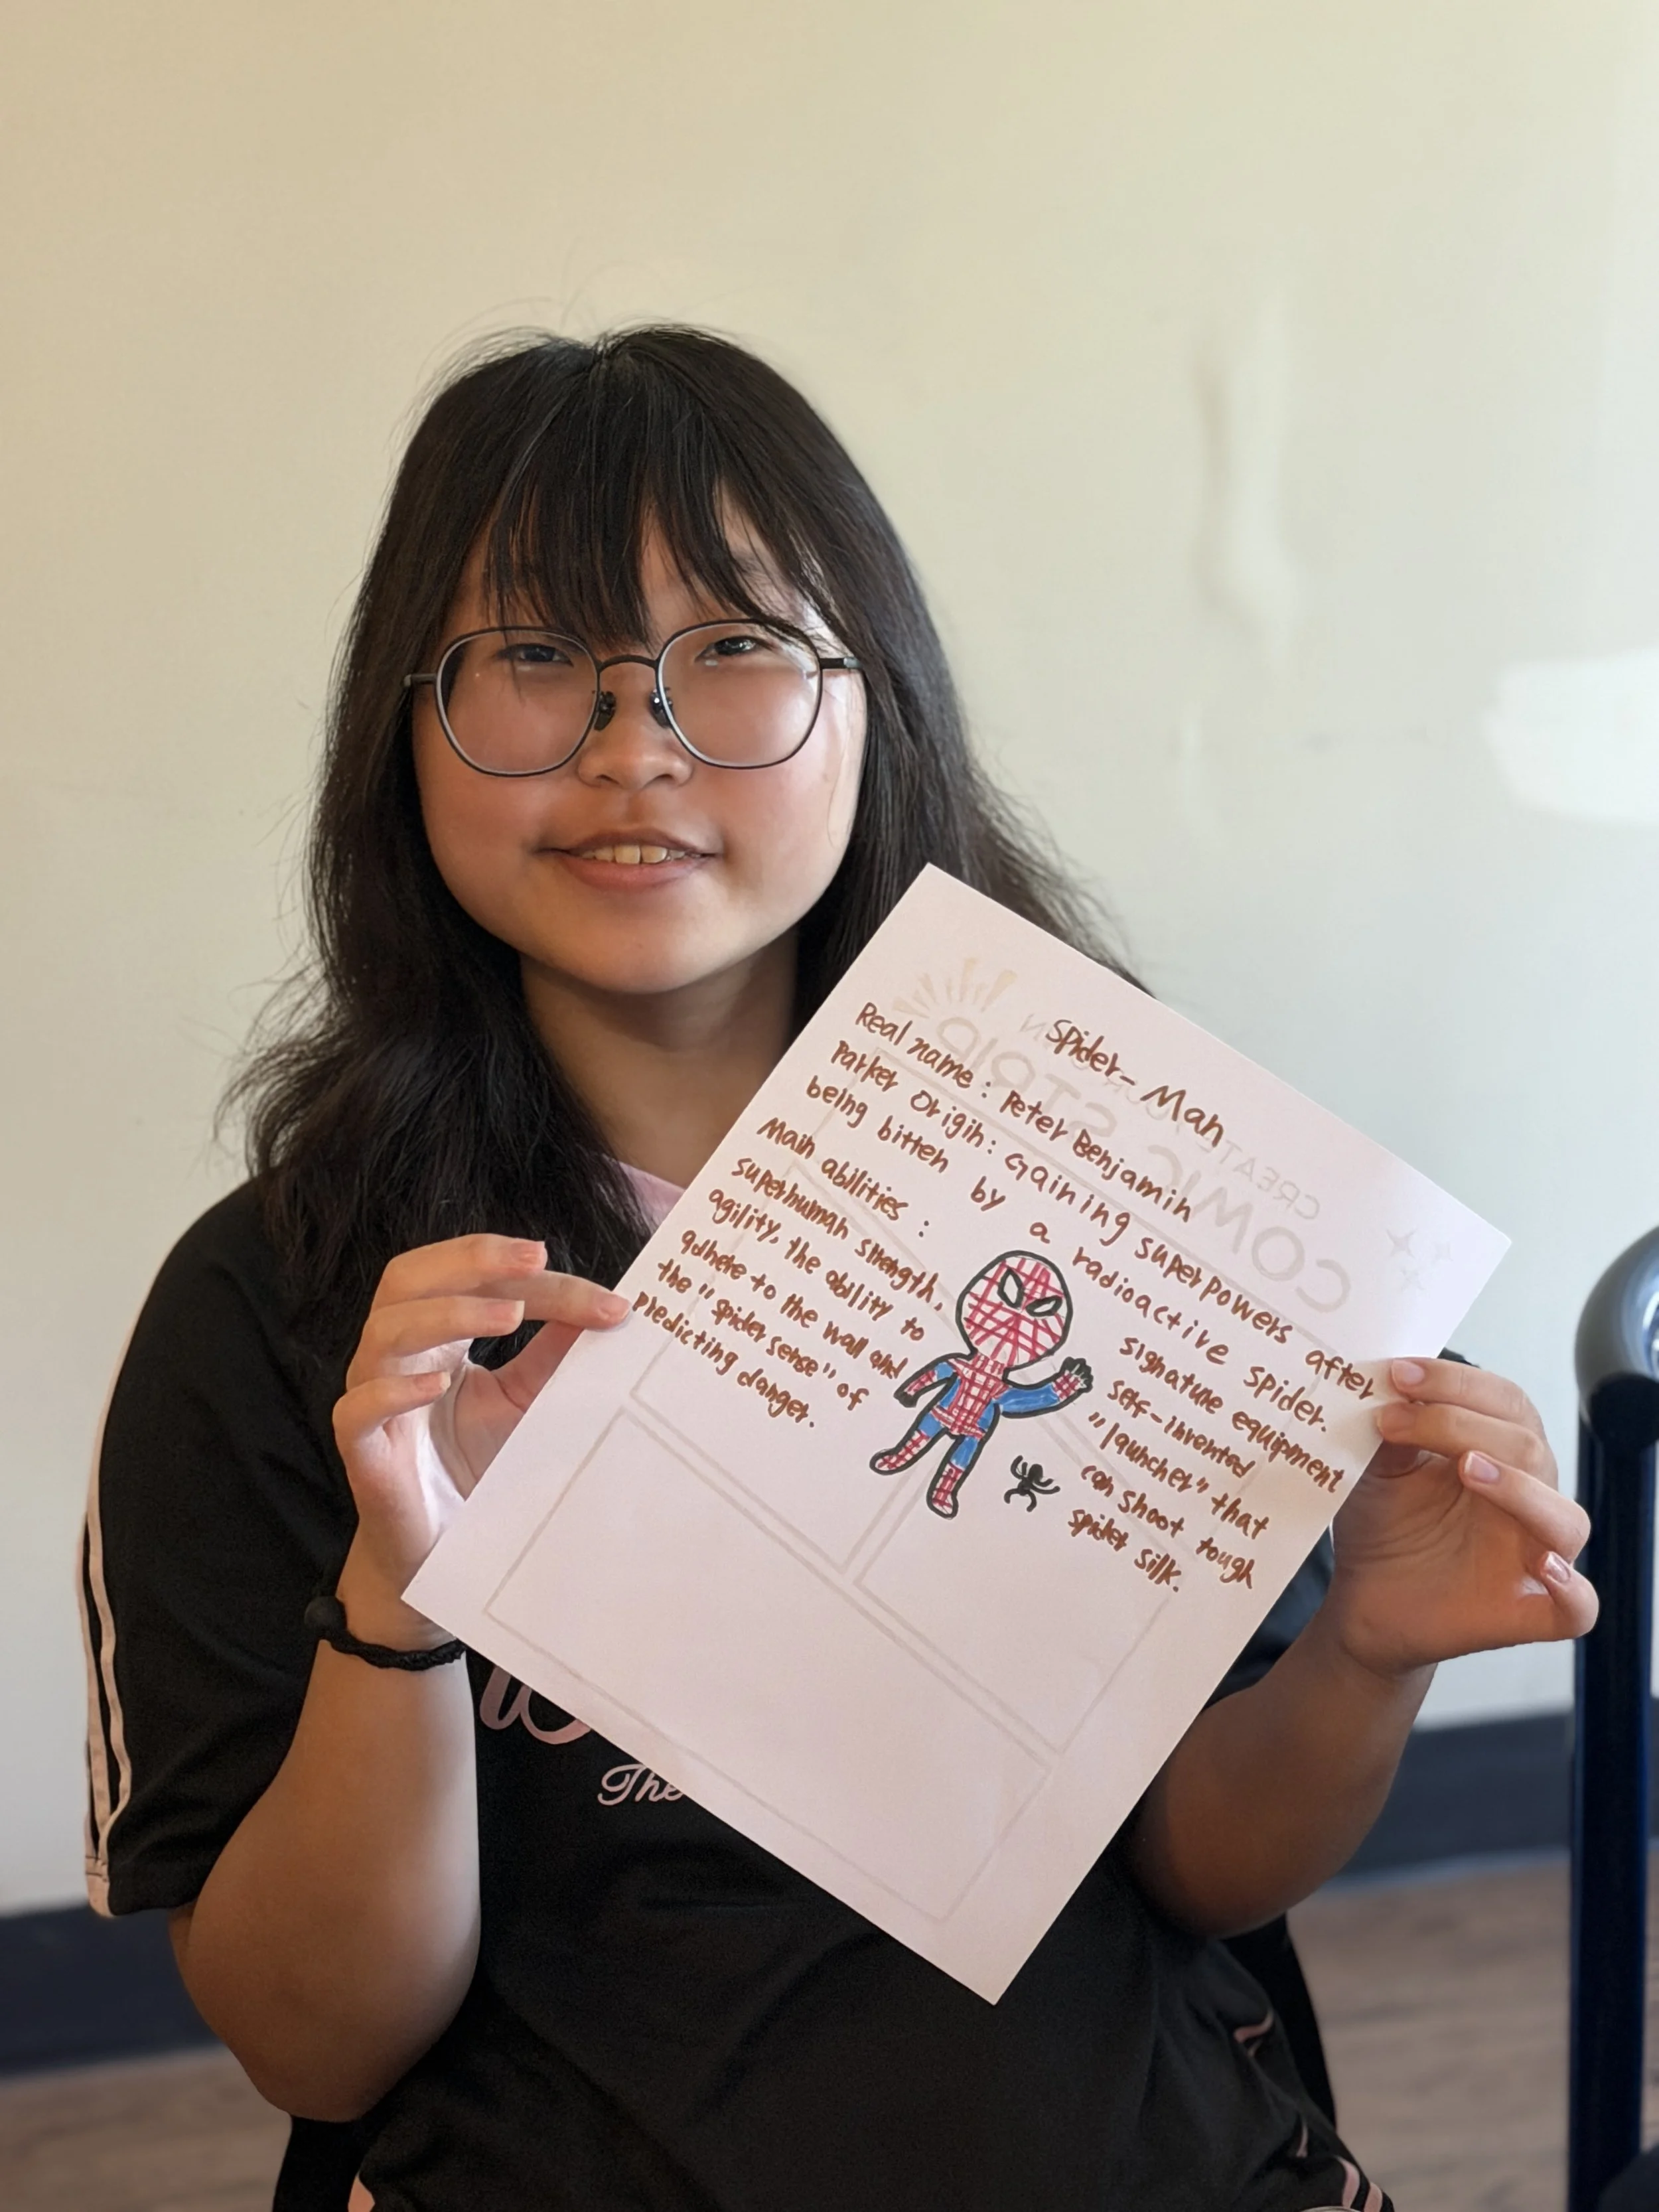 Spider-Man
Real name: Peter Benjamin
Parker Origin: Gaining superpowers after
being bitten by a radioactive spider.
Main abilities:
superhuman strength,
agility, the ability to
adhere to the wall and
the "spider sense" of
predicting danger.
signature equipment
self-invented
"launcher" that
can shoot tough
spider silk.
CREATE
COMIC STRIP
The